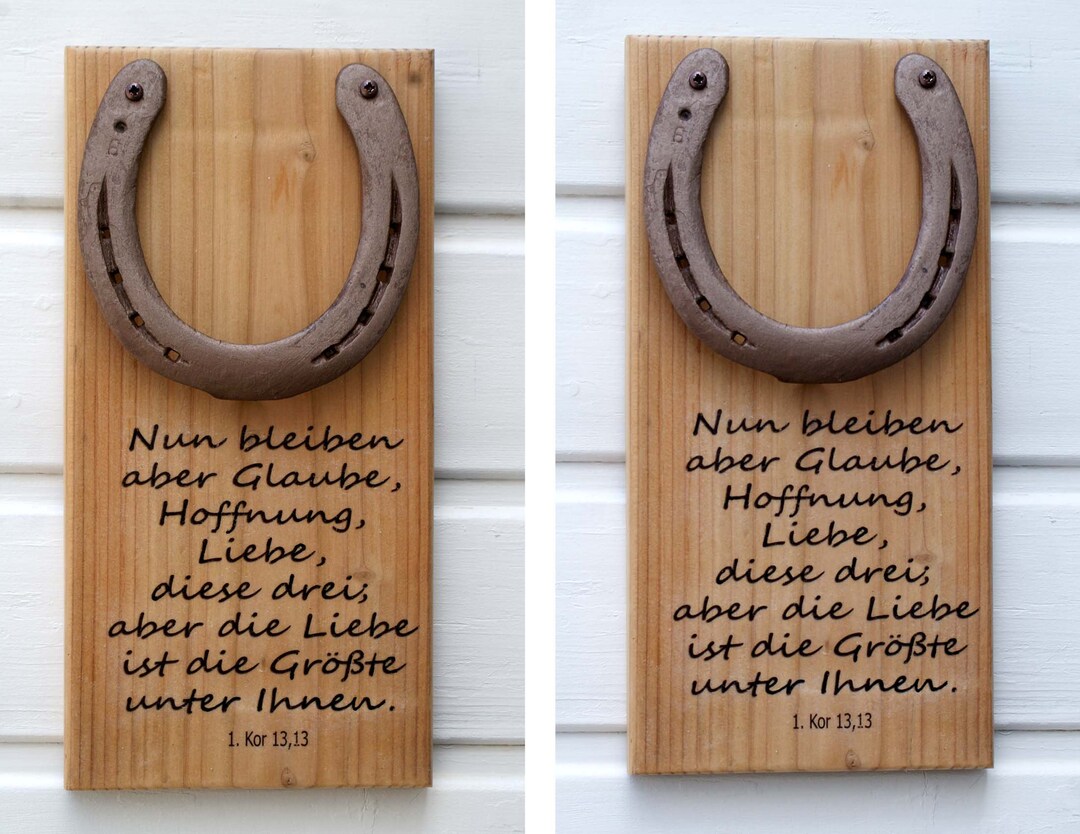 Nun bleiben
aber Glaube,
Hoffnung,
Liebe,
diese drei;
aber die Liebe
ist die Größte
unter Ihnen.
1. Kor 13,13
Nun bleiben
aber Glaube,
Hoffnung,
Liebe,
diese drei;
aber die Liebe
ist die Größte
unter Ihnen.
1. Kor 13,13